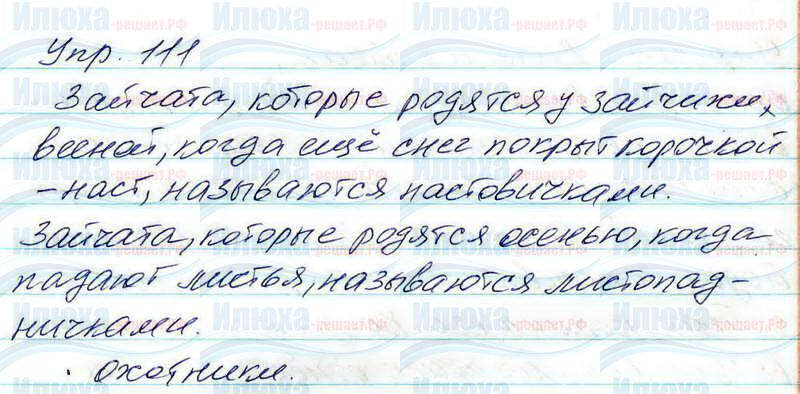 Упр. 111
Зайчата, которые родятся у зайчихи
весной, когда ещё снег покрыт корочкой
-наст, называются настовичками.
Зайчата, которые родятся осенью, когда
падают листья, называются листопад-
ничками.
охотники.